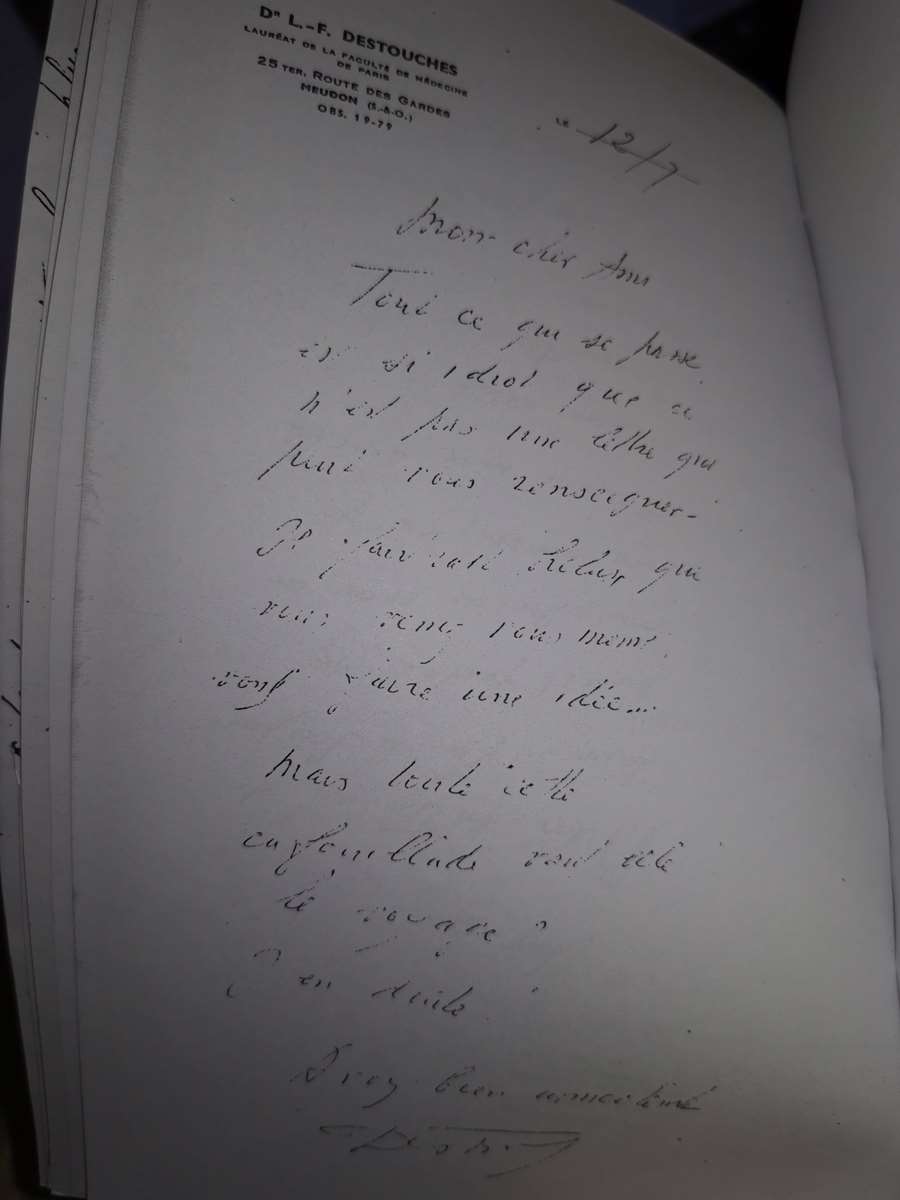 Dr L.-F. DESTOUCHES
LAURÉAT DE LA FACULTÉ DE MÉDECINE
DE PARIS
25 TER, ROUTE DES GARDES
MEUDON (S.-&-O.)
OBS. 19-79
LE 12/7
Mon cher Ami
Tout ce qui se passe
est si idiot que ce
n'est pas une lettre qui
peut vous renseigner -
Il faudrait hélas, que
vous venez vous même
vous faire une idée...
Mais toute cette
cafouillade vaut elle
le voyage ?
J'en doute !
A vous bien